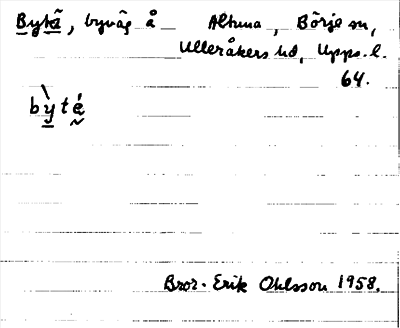 Bytå, byväg å Altuna, Börje sn,
Ulleråkers hd, Upps. l.
64.
bỳté
Bror-Erik Ohlsson 1958.